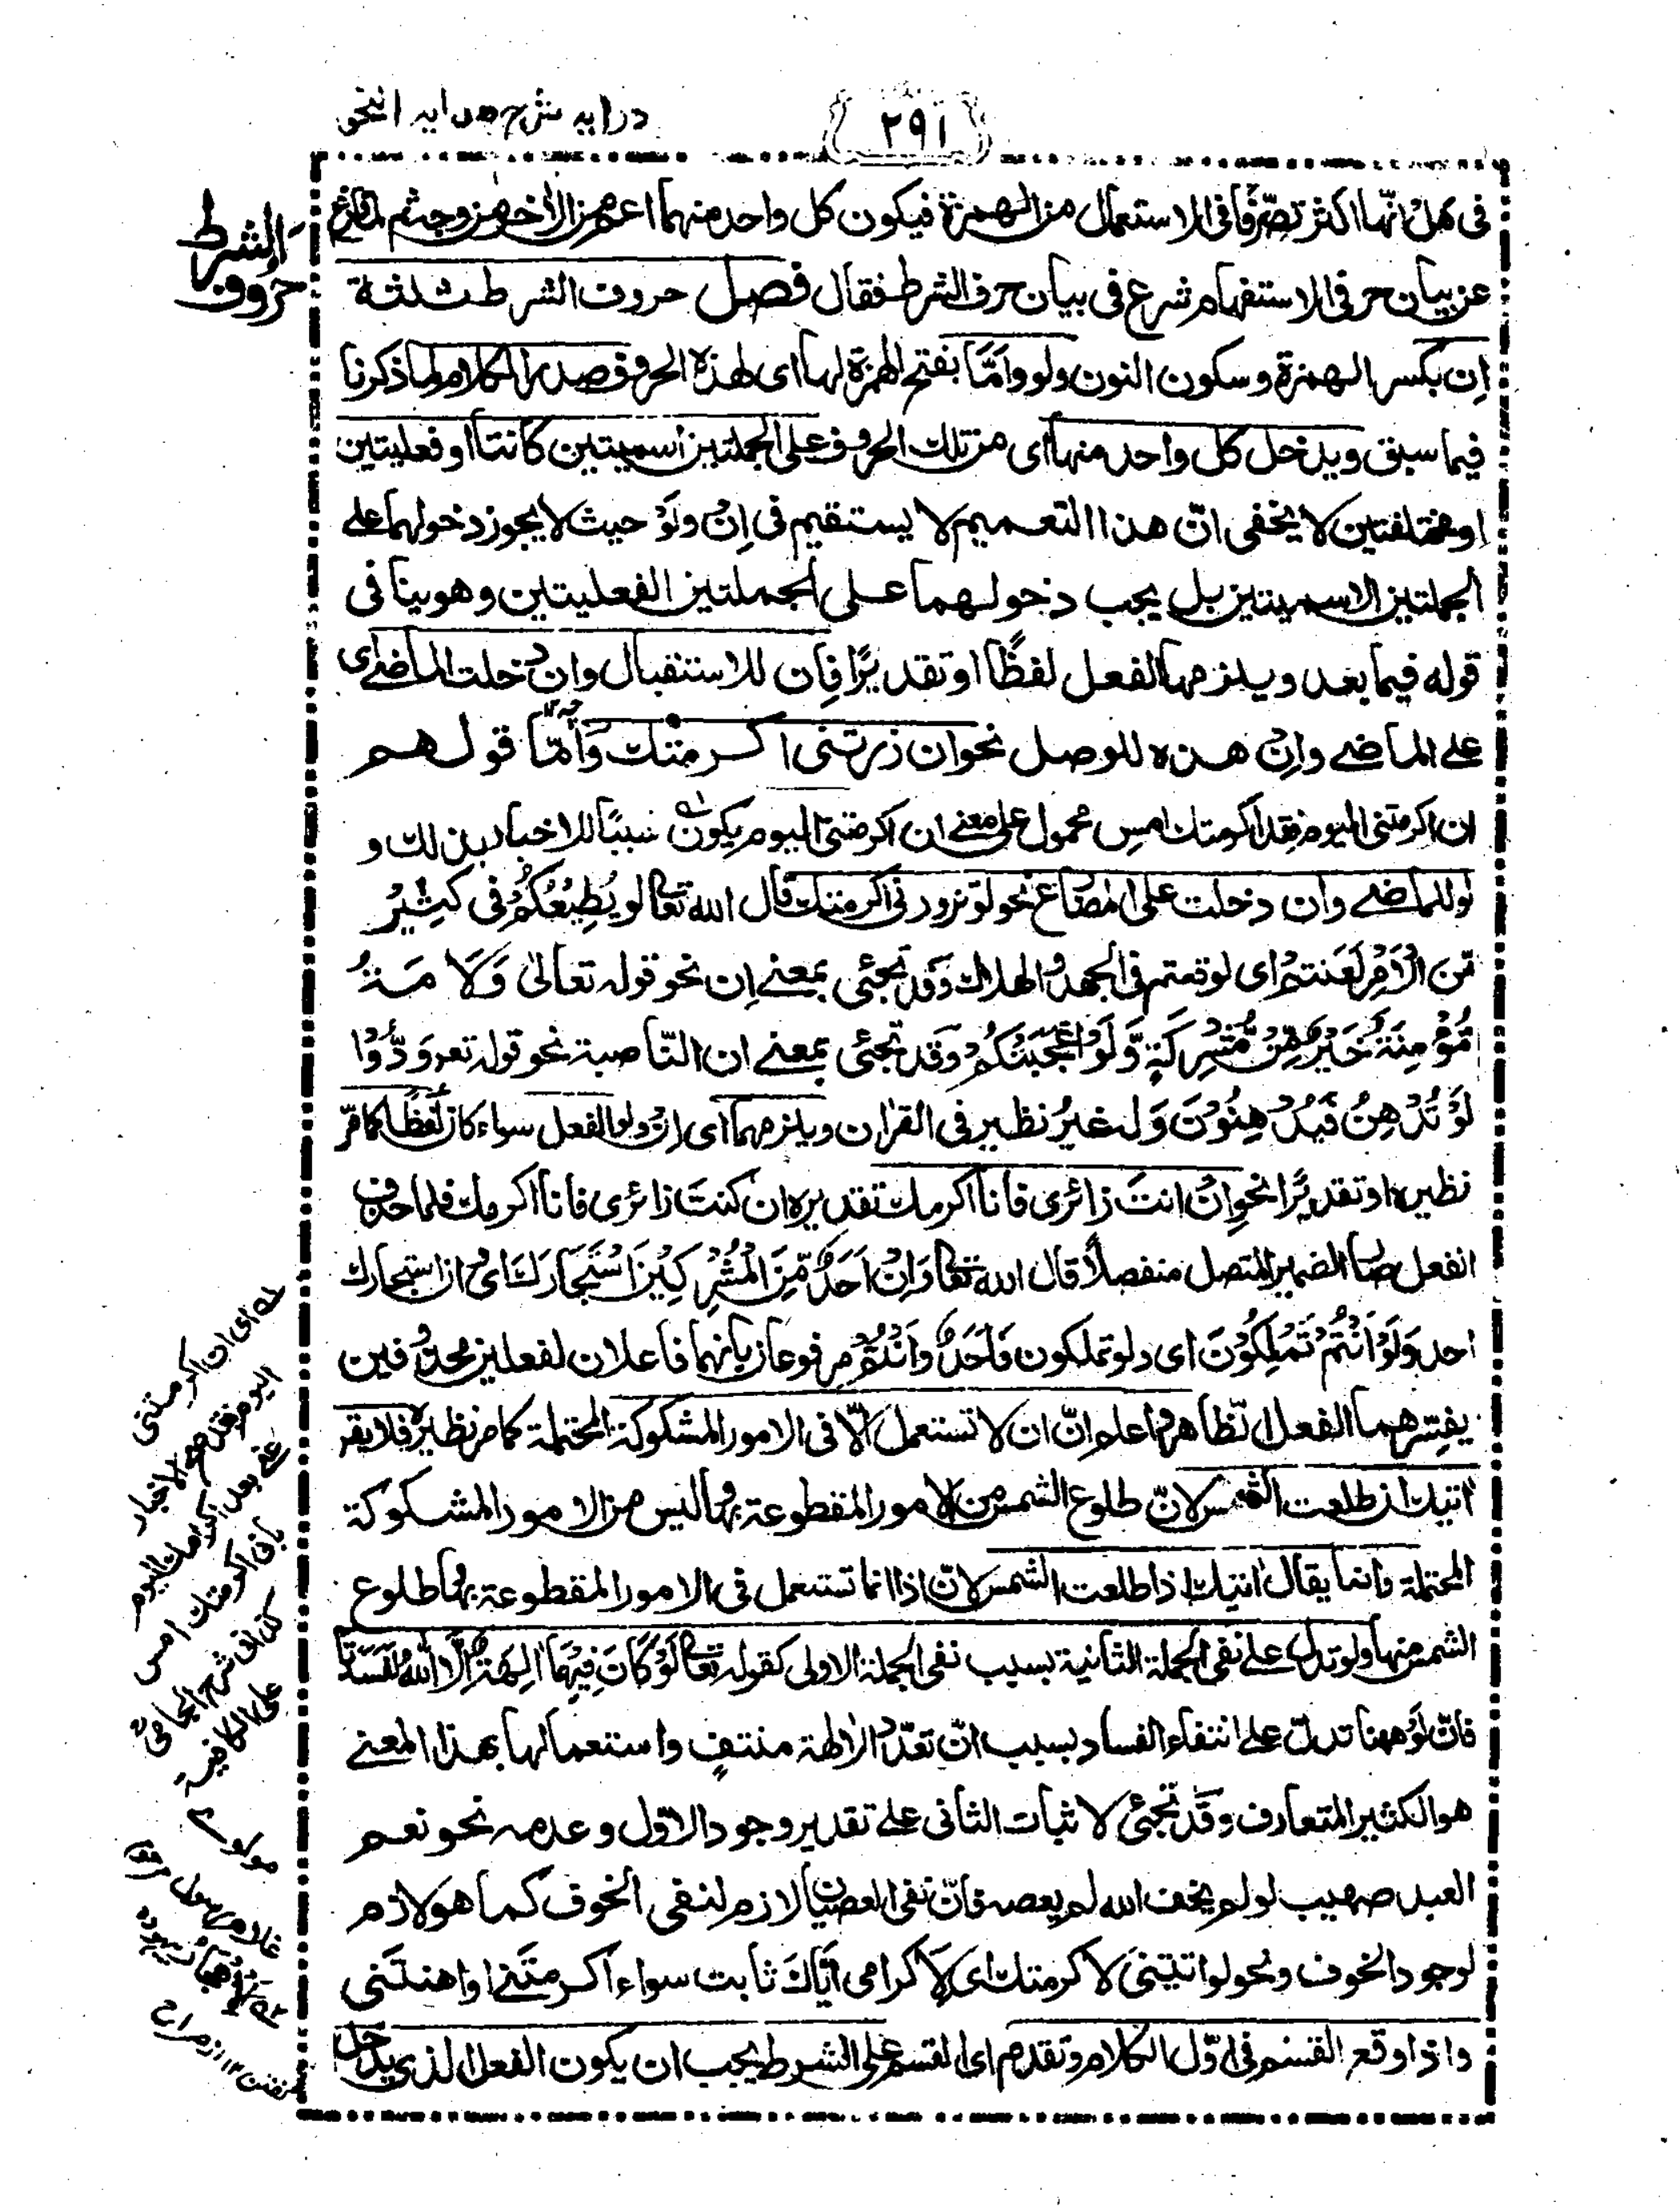 ٢٩١
درايه شرح هدايه النحو
حروف الشرط
فى هَلْ انّها اكثر تصرّفًا فى الاستعمال من الهمزة فيكون كل واحد منهما اعم من الاخص من وجه ثم لما فرغ
عن بيان حرفى الاستفهام شرع فى بيان حرف الشرط فقال فصل حروف الشرط ثلثة
اِن بكسر الهمزة وسكون النون ولو واَمَّا بفتح الهمزة لها اى لهذه الحروف صدر الكلام ولما ذكرنا
فيما سبق ويدخل كل واحد منها اى من تلك الحروف على الجملتين اسميتين كانتا او فعليتين
او مختلفتين لا يخفى انّ هذا التعميم لا يستقيم فى اِنْ ولَوْ حيث لا يجوز دخولهما على
الجملتين الاسميتين بل يجب دخولهما على الجملتين الفعليتين وهو ينافى
قوله فيما بعد ويلزمها الفعل لفظًا او تقديرًا فاِن للاستقبال وان دخلت الماضى اى
على الماضى واِن هذه للوصل نحو ان زرتنى اكرمتك وَاَمّا قولهم
ان اكرمتنى اليوم فقد اكرمتك امسِ محمول على معنى ان اكرمتنى اليوم يكون سببًا للاخبار بذلك و
لو للماضى وان دخلت على المضارع نحو لو تزورنى اكرمتك قال الله تعالى لو يُطِيْعُكُمْ فى كَثِيْرٍ
مِّنَ الْاَمْرِ لَعَنِتُّمْ اى لوقعتم فى الجهد والهلاك وَقد تجئى بمعنى اِن نحو قوله تعالىٰ وَلَاَ مَةٌ
مُّؤْمِنَةٌ خَيْرٌ مِّنْ مُّشْرِكَةٍ وَّلَوْ اَعْجَبَتْكُمْ وَقد تجئى بمعنى ان النّاصبة نحو قوله تعر وَدُّوْا
لَوْ تُدْهِنُ فَيُدْهِنُوْنَ وَله غيرُ نظير فى القران ويلزمهما اى اِنْ ولو الفعل سواء كان لفظًا كما مرّ
نظيره او تقديرًا نحو اِنْ انتَ زائرى فانا اكرمك تقديره ان كنتَ زائرى فانا اكرمك فلما حذف
الفعل صار الضمير المتصل منفصلًا قال الله تعالى وَاِنْ اَحَدٌ مِّنَ الْمُشْرِكِيْنَ اسْتَجَارَكَ اى ان استجارك
احد وَلَوْ اَنْتُمْ تَمْلِكُوْنَ اى ولو تملكون فَاَحَدٌ وَاَنْتُمْ مرفوعان بانهما فاعلان لفعلين محذوفين
يفسّرهما الفعل الظاهر واعلم انّ ان لا تستعمل الّا فى الامور المشكوكة المحتملة كما مر نظيره فلا يقر
اتيك ان طلعت الشمس لانّ طلوع الشمس من الامور المقطوعة بها ليس من الامور المشكوكة
المحتملة وانما يقال اتيك اذا طلعت الشمس لانّ اذا انما تستعمل فى الامور المقطوعة بها طلوع
الشمس منها ولو تدل على نفى الجملة الثانية بسبب نفى الجملة الاولى كقوله تعالى لَوْ كَانَ فِيْهِمَا اٰلِهَةٌ اِلَّا اللهُ لَفَسَدَتَا
فانّ لَوْ ههنا تدلّ على انتفاء الفساد بسبب انّ تعدّد الاٰلهة منتفٍ واستعمالها بهذا المعنى
هو الكثير المتعارف وقد تجئى لاثبات الثانى على تقدير وجود الاوّل وعدمه نحو نعم
العبد صهيب لو لم يخف الله لم يعصه فانّ نفى العصيان لازم لنفى الخوف كما هو لازم
لوجود الخوف ونحو لو اتيتنى لاكرمتك اى لاَكرامى اَيّاكَ ثابت سواء اكرمتَنى او اهنتَنى
واذا وقع القسم فى اوّل الكلام وتقدم اى القسم على الشرط يجب ان يكون الفعل الذى يدخل
له اى ان اكرمتنى
اليوم فقد صح الاخبار
بعد اكرامك اليوم
بانى اكرمتك امس
كذا فى شرح الجامى
على الكافية
مولوى
غلام رسول